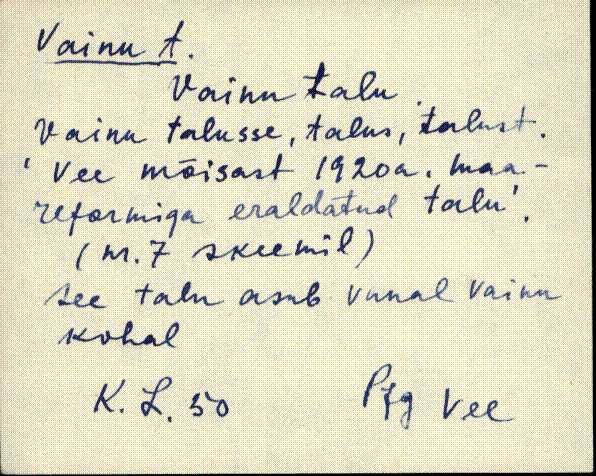 Vainu t.
Vainu talu.
Vainu talusse, talus, talust.
'Vee mõisast 1920a. maa-
reformiga eraldatud talu'.
(nr. 7 skeemil)
see talu asub vanal vainu
kohal
K. L. 50 Pfg Vee